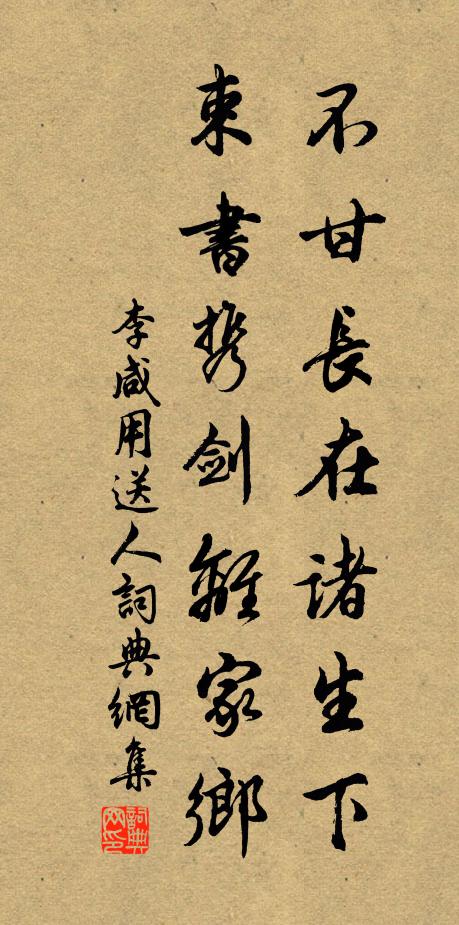 不甘長在諸生下
束書携劍離家鄉
李咸用送人詞典網集
詞典网印